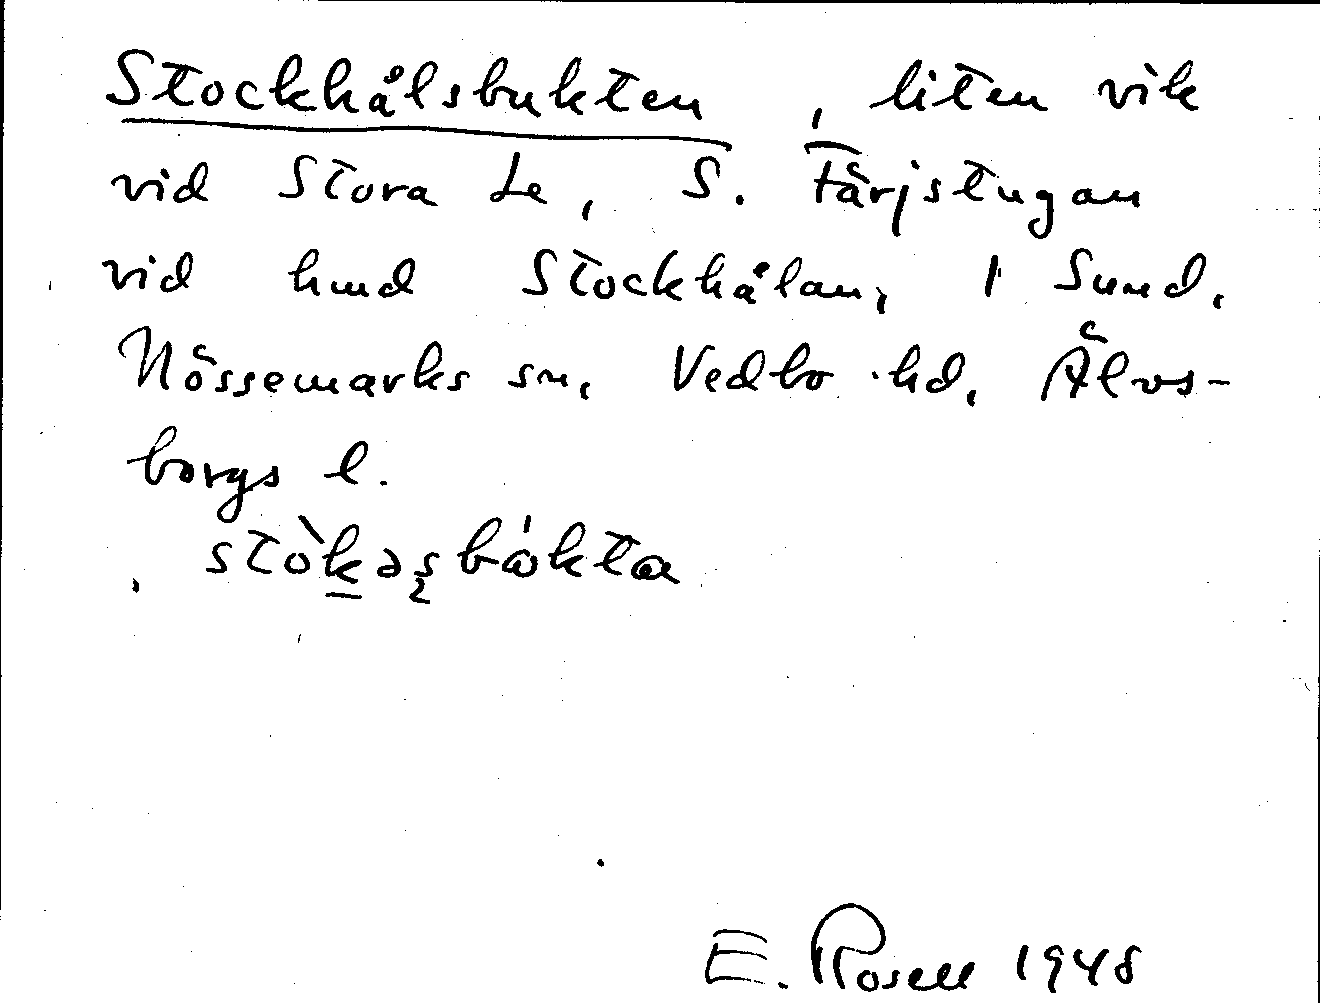 Stockhålsbukten, liten vik
vid Stora Le, S. Färjstugan
vid hmd Stockhålan, 1 Sund,
Nössemarks sn, Vedbo hd, Älvs-
borgs l.
stòkəsbókta
E. Rosell 1948